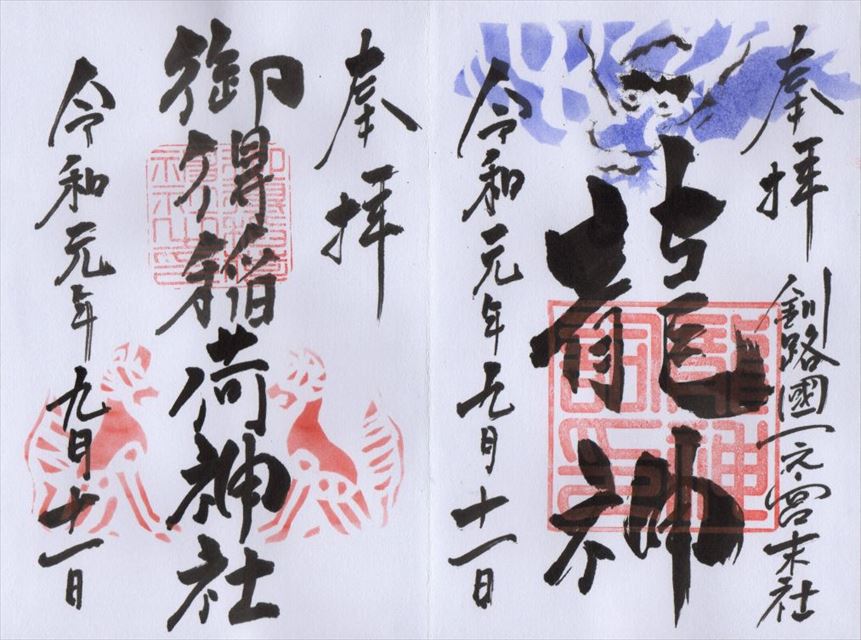 奉拝
釧路國一之宮末社
龍神
令和元年九月十一日
奉拝
御得稲荷神社
令和元年九月十一日